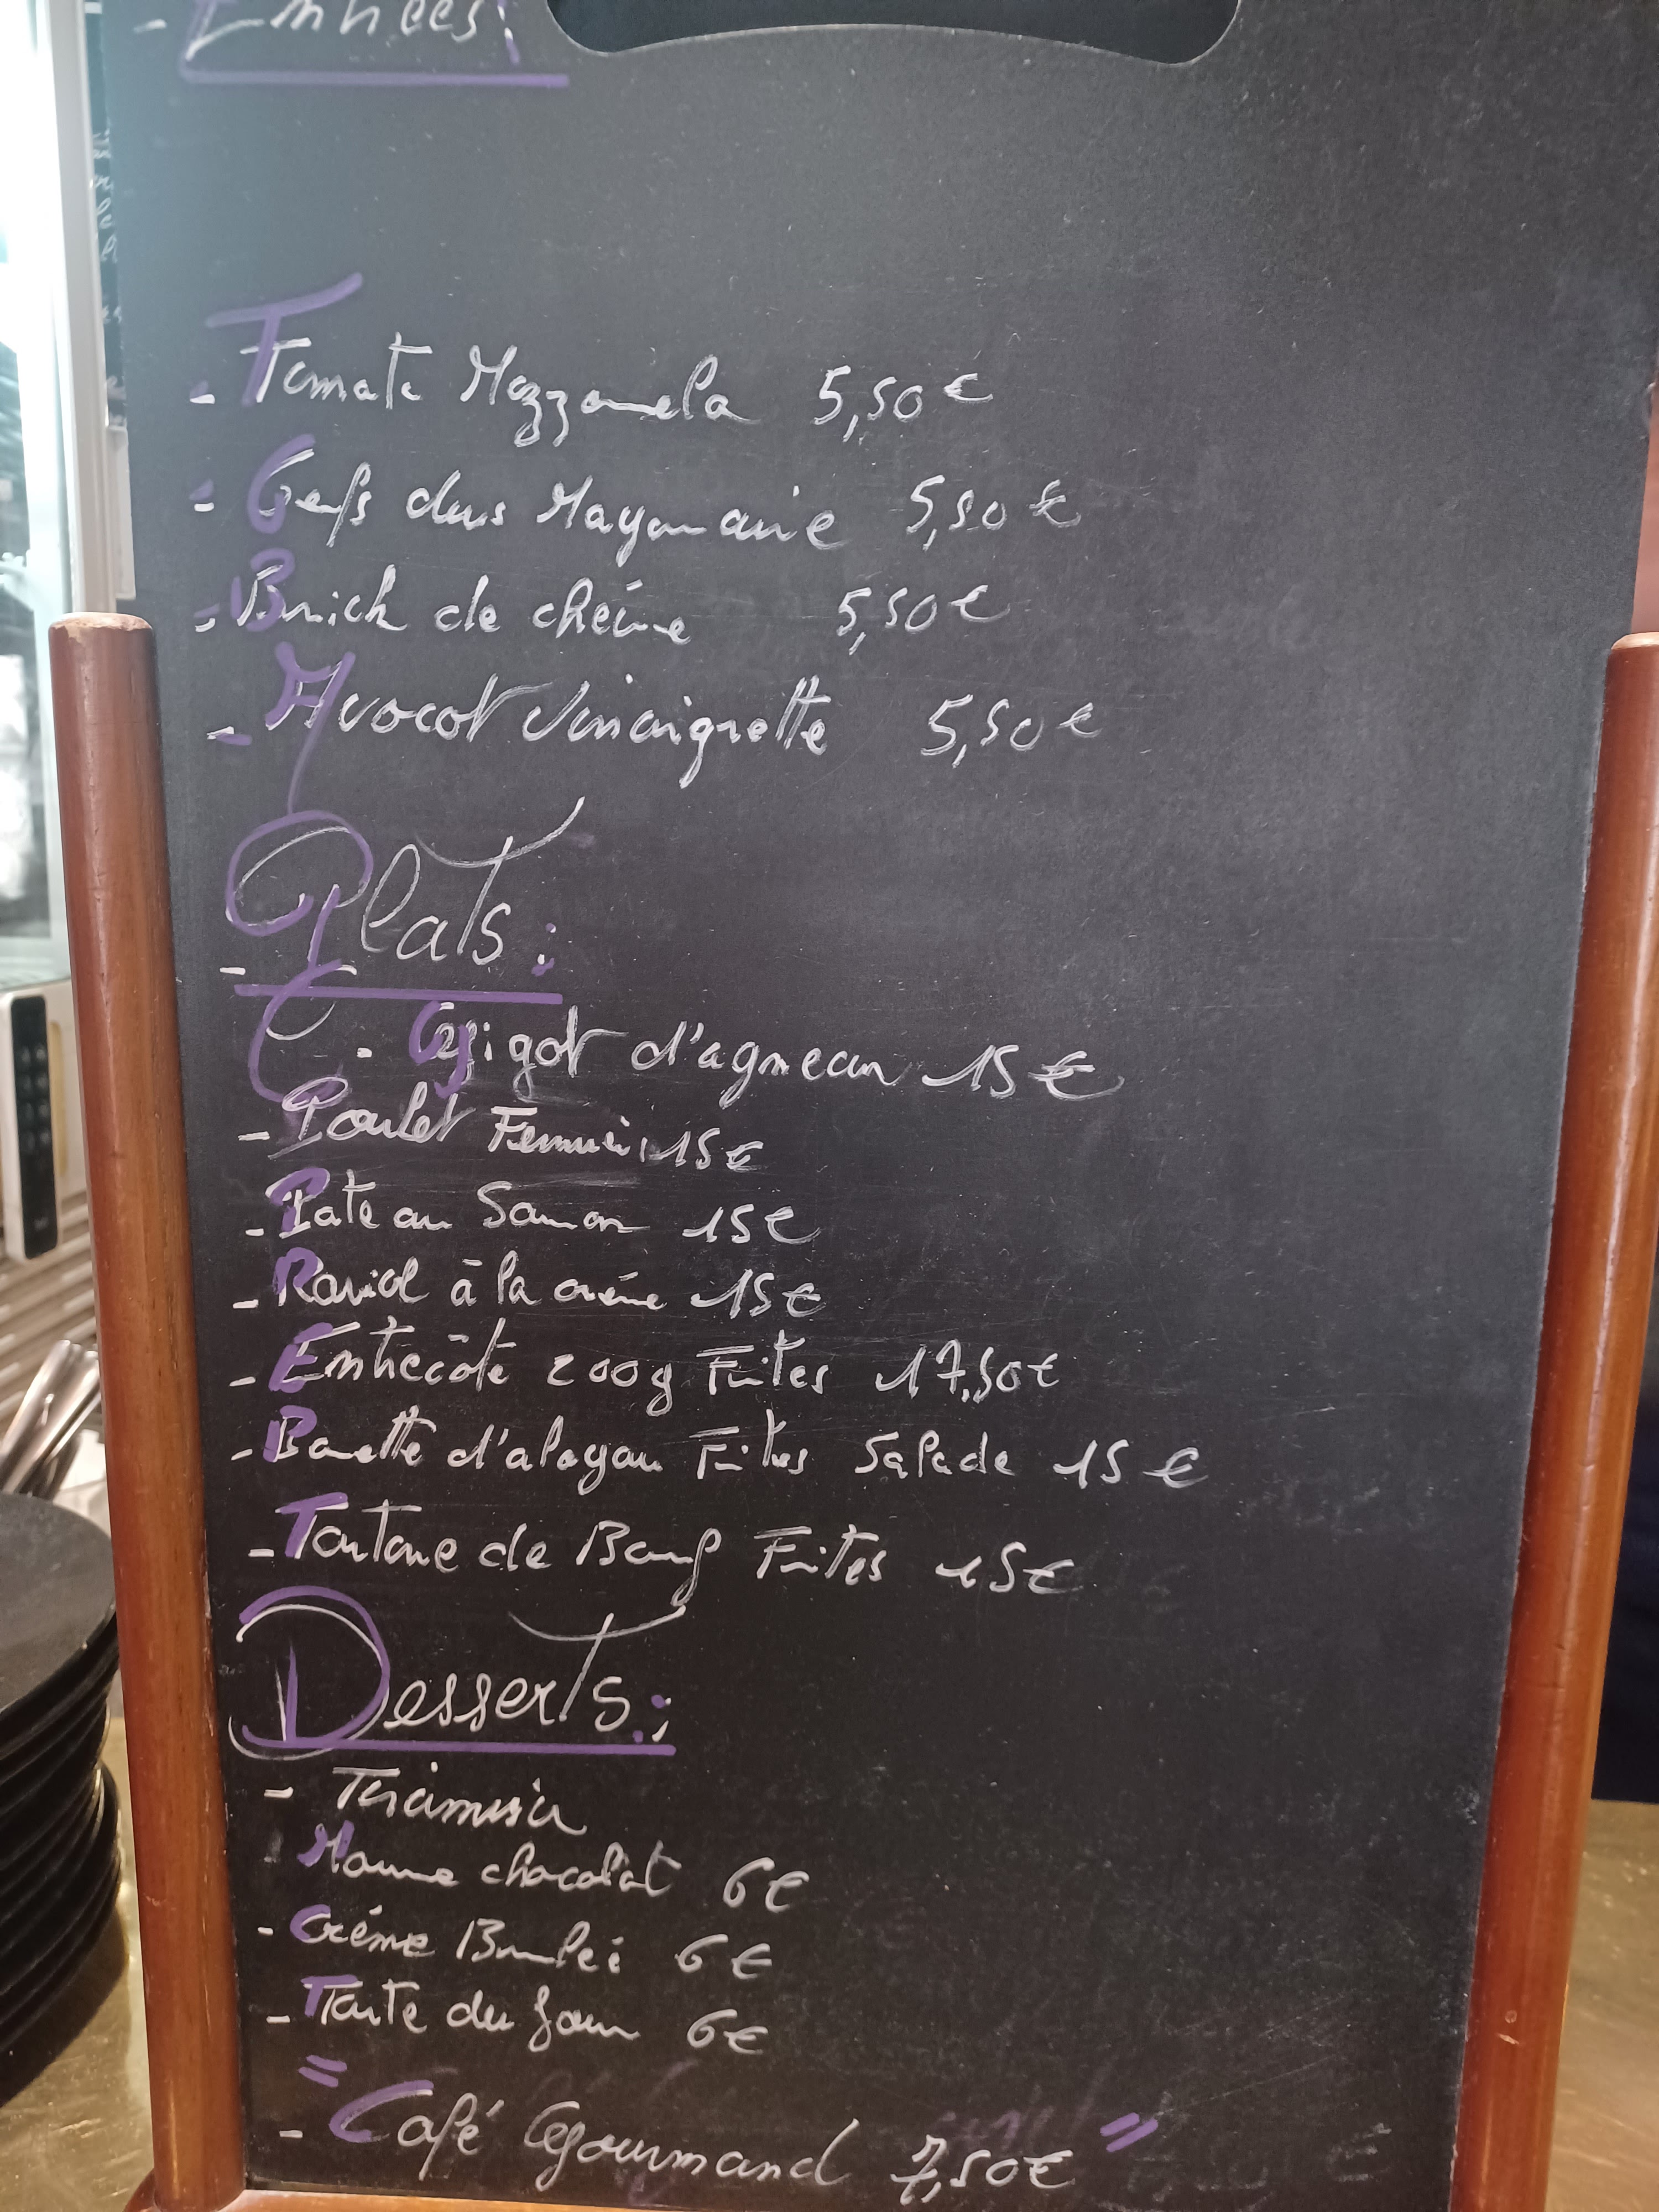 - Entrées:
- Tomate Mozzarela 5,50€
- Oeufs durs Mayonnaise 5,50€
- Brick de chèvre 5,50€
- Avocat Vinaigrette 5,50€
- Plats:
- Gigot d'agneau 15€
- Poulet Fermier 15€
- Pate au Saumon 15€
- Raviol à la crème 15€
- Entrecôte 200g Frites 17,50€
- Bavette d'aloyau Frites Salade 15€
- Tartare de Boeuf Frites 15€
Desserts:
- Tiramisu
Mousse chocolat 6€
- Crème Brulée 6€
- Tarte du Jour 6€
- Café Gourmand 7,50€